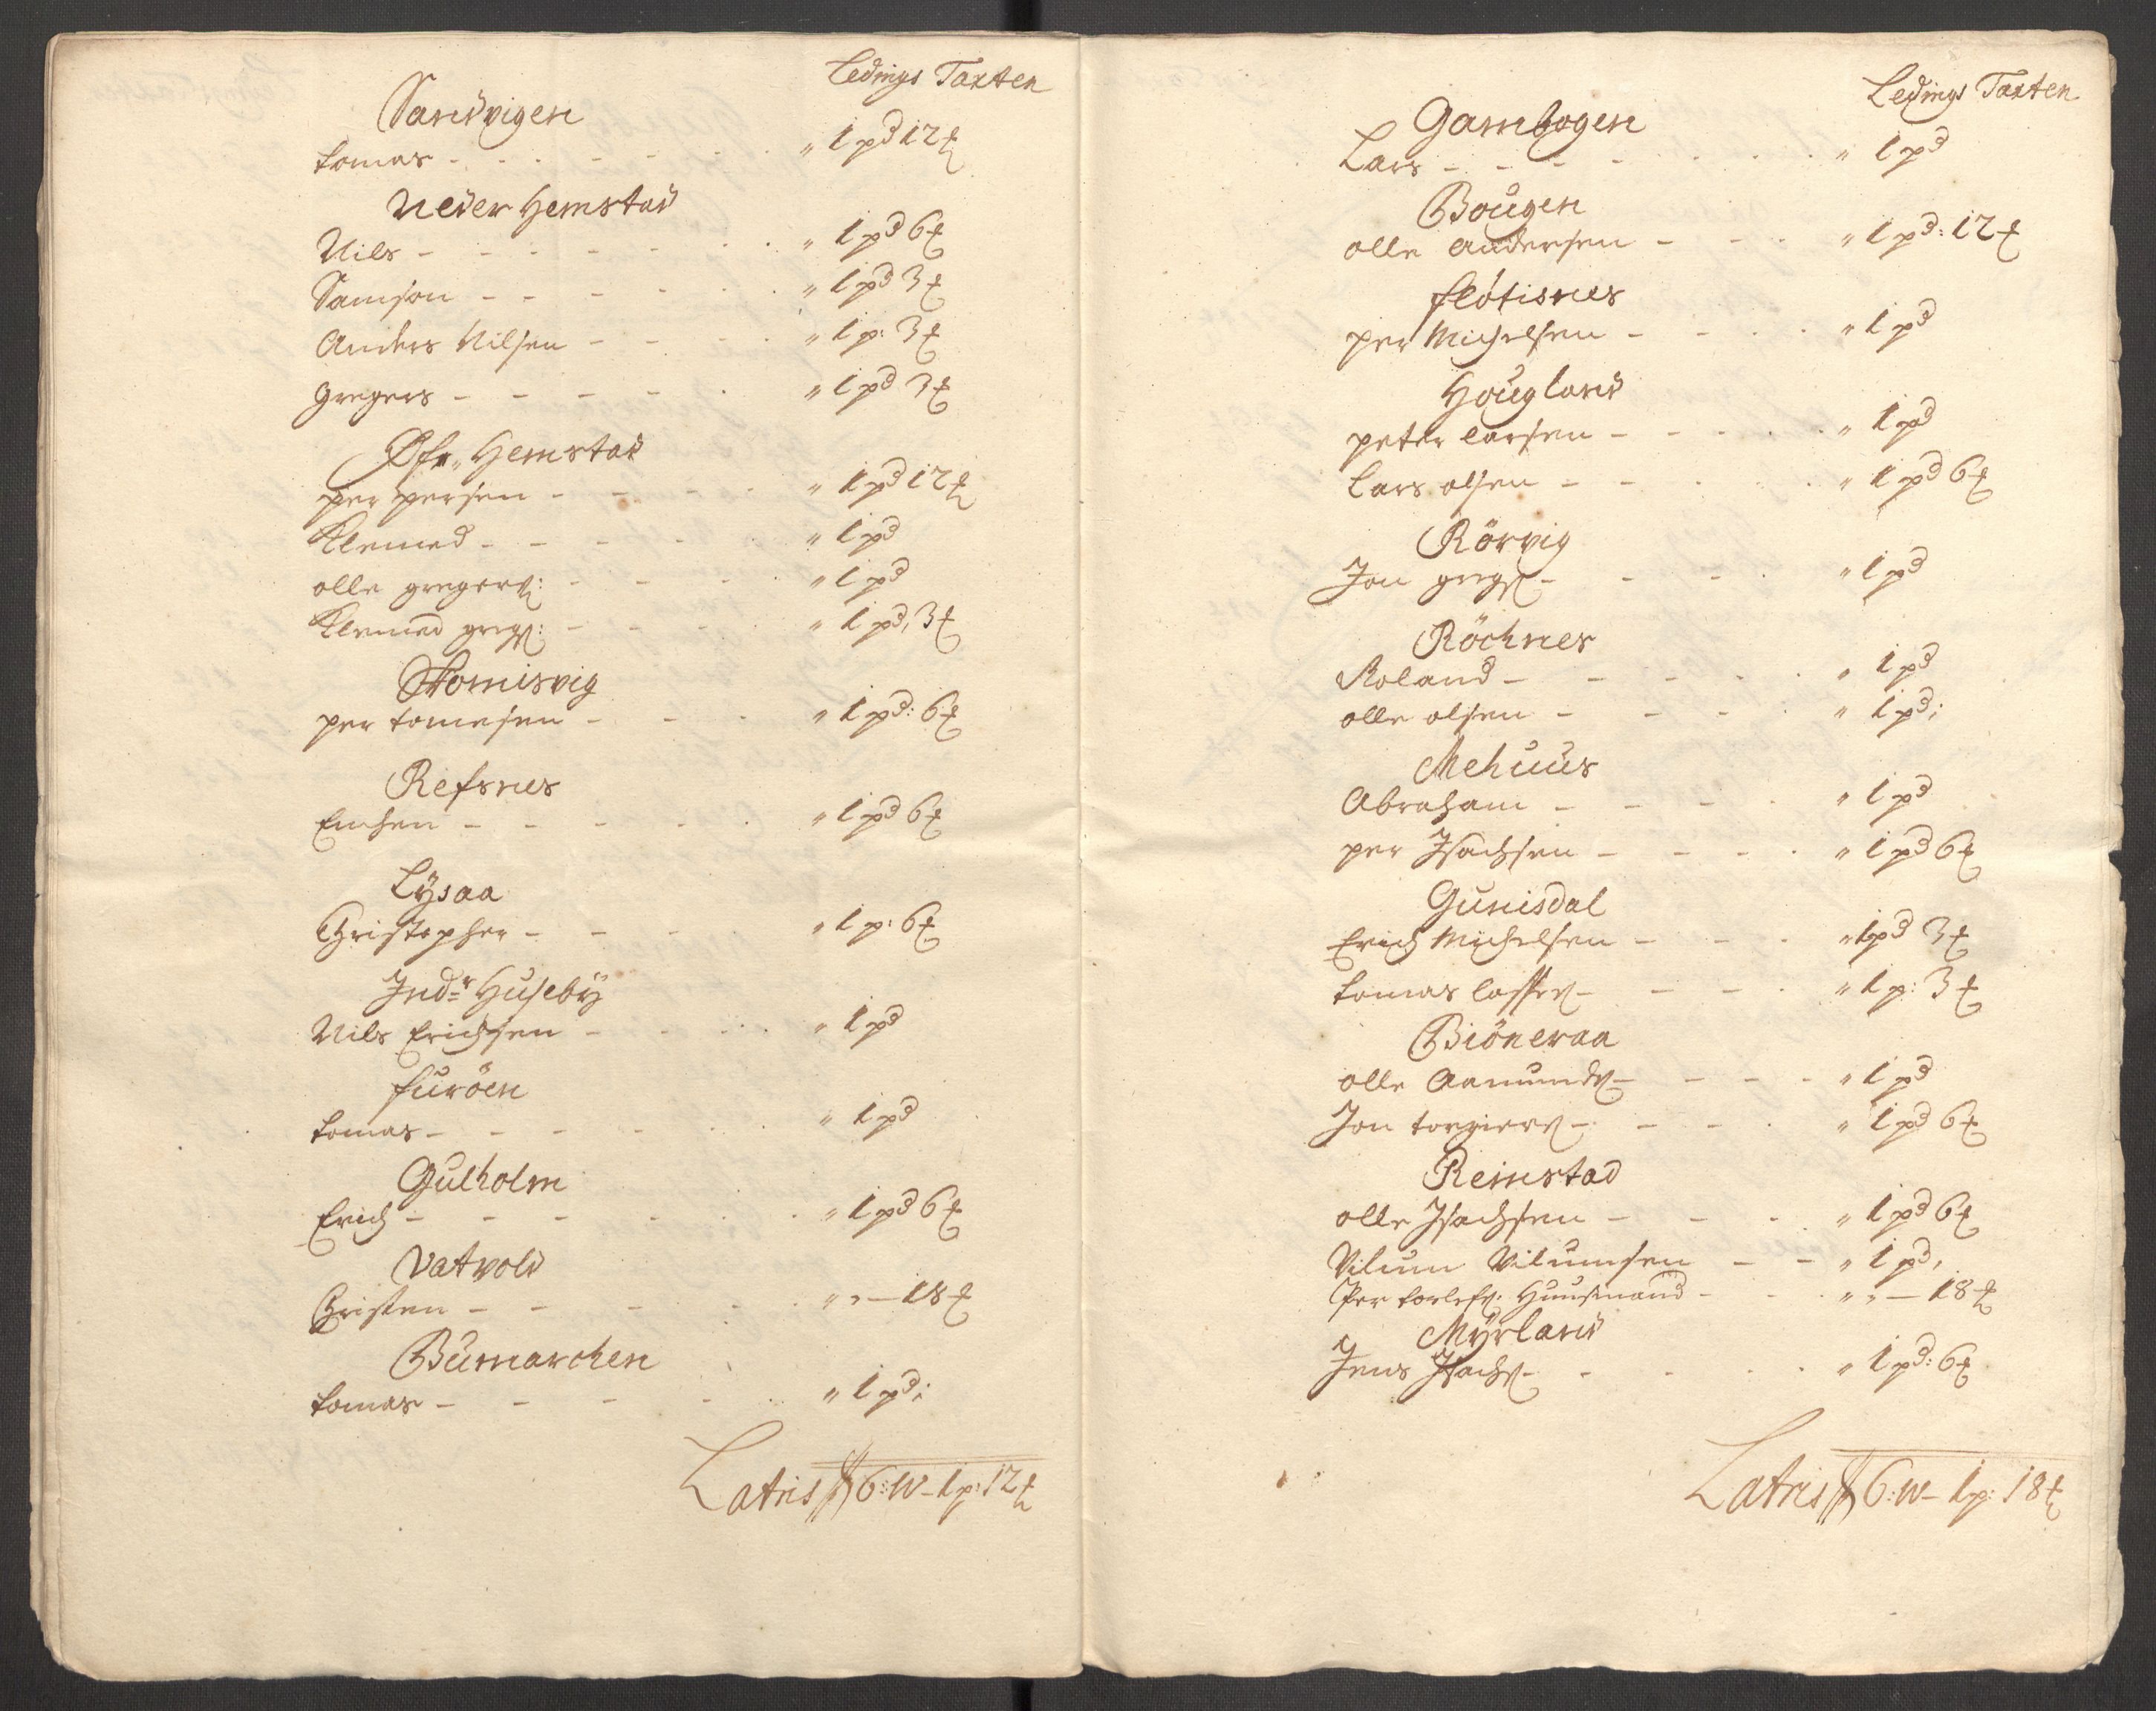 Ledings Taxten
Sandvigen
tomas - - - - - - " 1 pd 12 ℔
Neder Hemstad
Nils - - - - - - " 1 pd 6 ℔
Samson - - - - - " 1 pd 3 ℔
Anders Nilsen - - - - " 1 p: 3 ℔
gregers - - - - - " 1 pd 3 ℔
Øfr„ Hemstad
per persen - - - - " 1 pd 12 ℔
Klemed - - - - - " 1 pd
olle gregers: - - - " 1 pd
Klemed gregs: - - - " 1 pd, 3 ℔
Stornisvig
per tomesen - - - " 1 pd: 6 ℔
Refsnes
- - - - - " 1 pd 6 ℔
Lÿsaa
Christopher - - - - " 1 p: 6 ℔
Indr Husebÿ
Nils Erichsen - - - - " 1 pd
furöen
tomas - - - - - " 1 pd
Gulholm
Erich - - - - - - " 1 pd 6 ℔
Vatvold
Christen - - - - - " " - 18 ℔
Bumarchen
tomas - - - - - " 1 pd;
Latris 6: W - 1 p: 12 ℔
Ledings Taxten
Gambogen
Lars - - - - - - " 1 pd
Bougen
olle Andersen - - - " 1 pd: 12 ℔
flötisnes
per Michelsen - - - " 1 pd
Hougland
peter larsen - - - - " 1 pd
Lars olsen - - - - " 1 pd 6 ℔
Rörvig
Jon gregs - - - - " 1 pd
Röchnes
Roland - - - - - " 1 pd
olle olsen - - - - " 1 pd;
Mehuus
Abraham - - - - " 1 pd
per Isachsen - - - - " 1 pd 6 ℔
Gunisdal
Erich Michelsen - - - " 1 pd 3 ℔
tomas lasses - - - - " 1 p: 3 ℔
Biöneraa
olle Aamunds - - - - " 1 pd
Jon torgiers - - - - " 1 pd 6 ℔
Remstad
olle Isachsen - - - " 1 pd 6 ℔
Vilum Vilumsen - - " 1 pd,
Per torlefs: Huusmand - - " " - 18 ℔
Mÿrland
Jens Isachs - - - - " 1 pd: 6 ℔
Latris 6: W - 1 p: 18 ℔